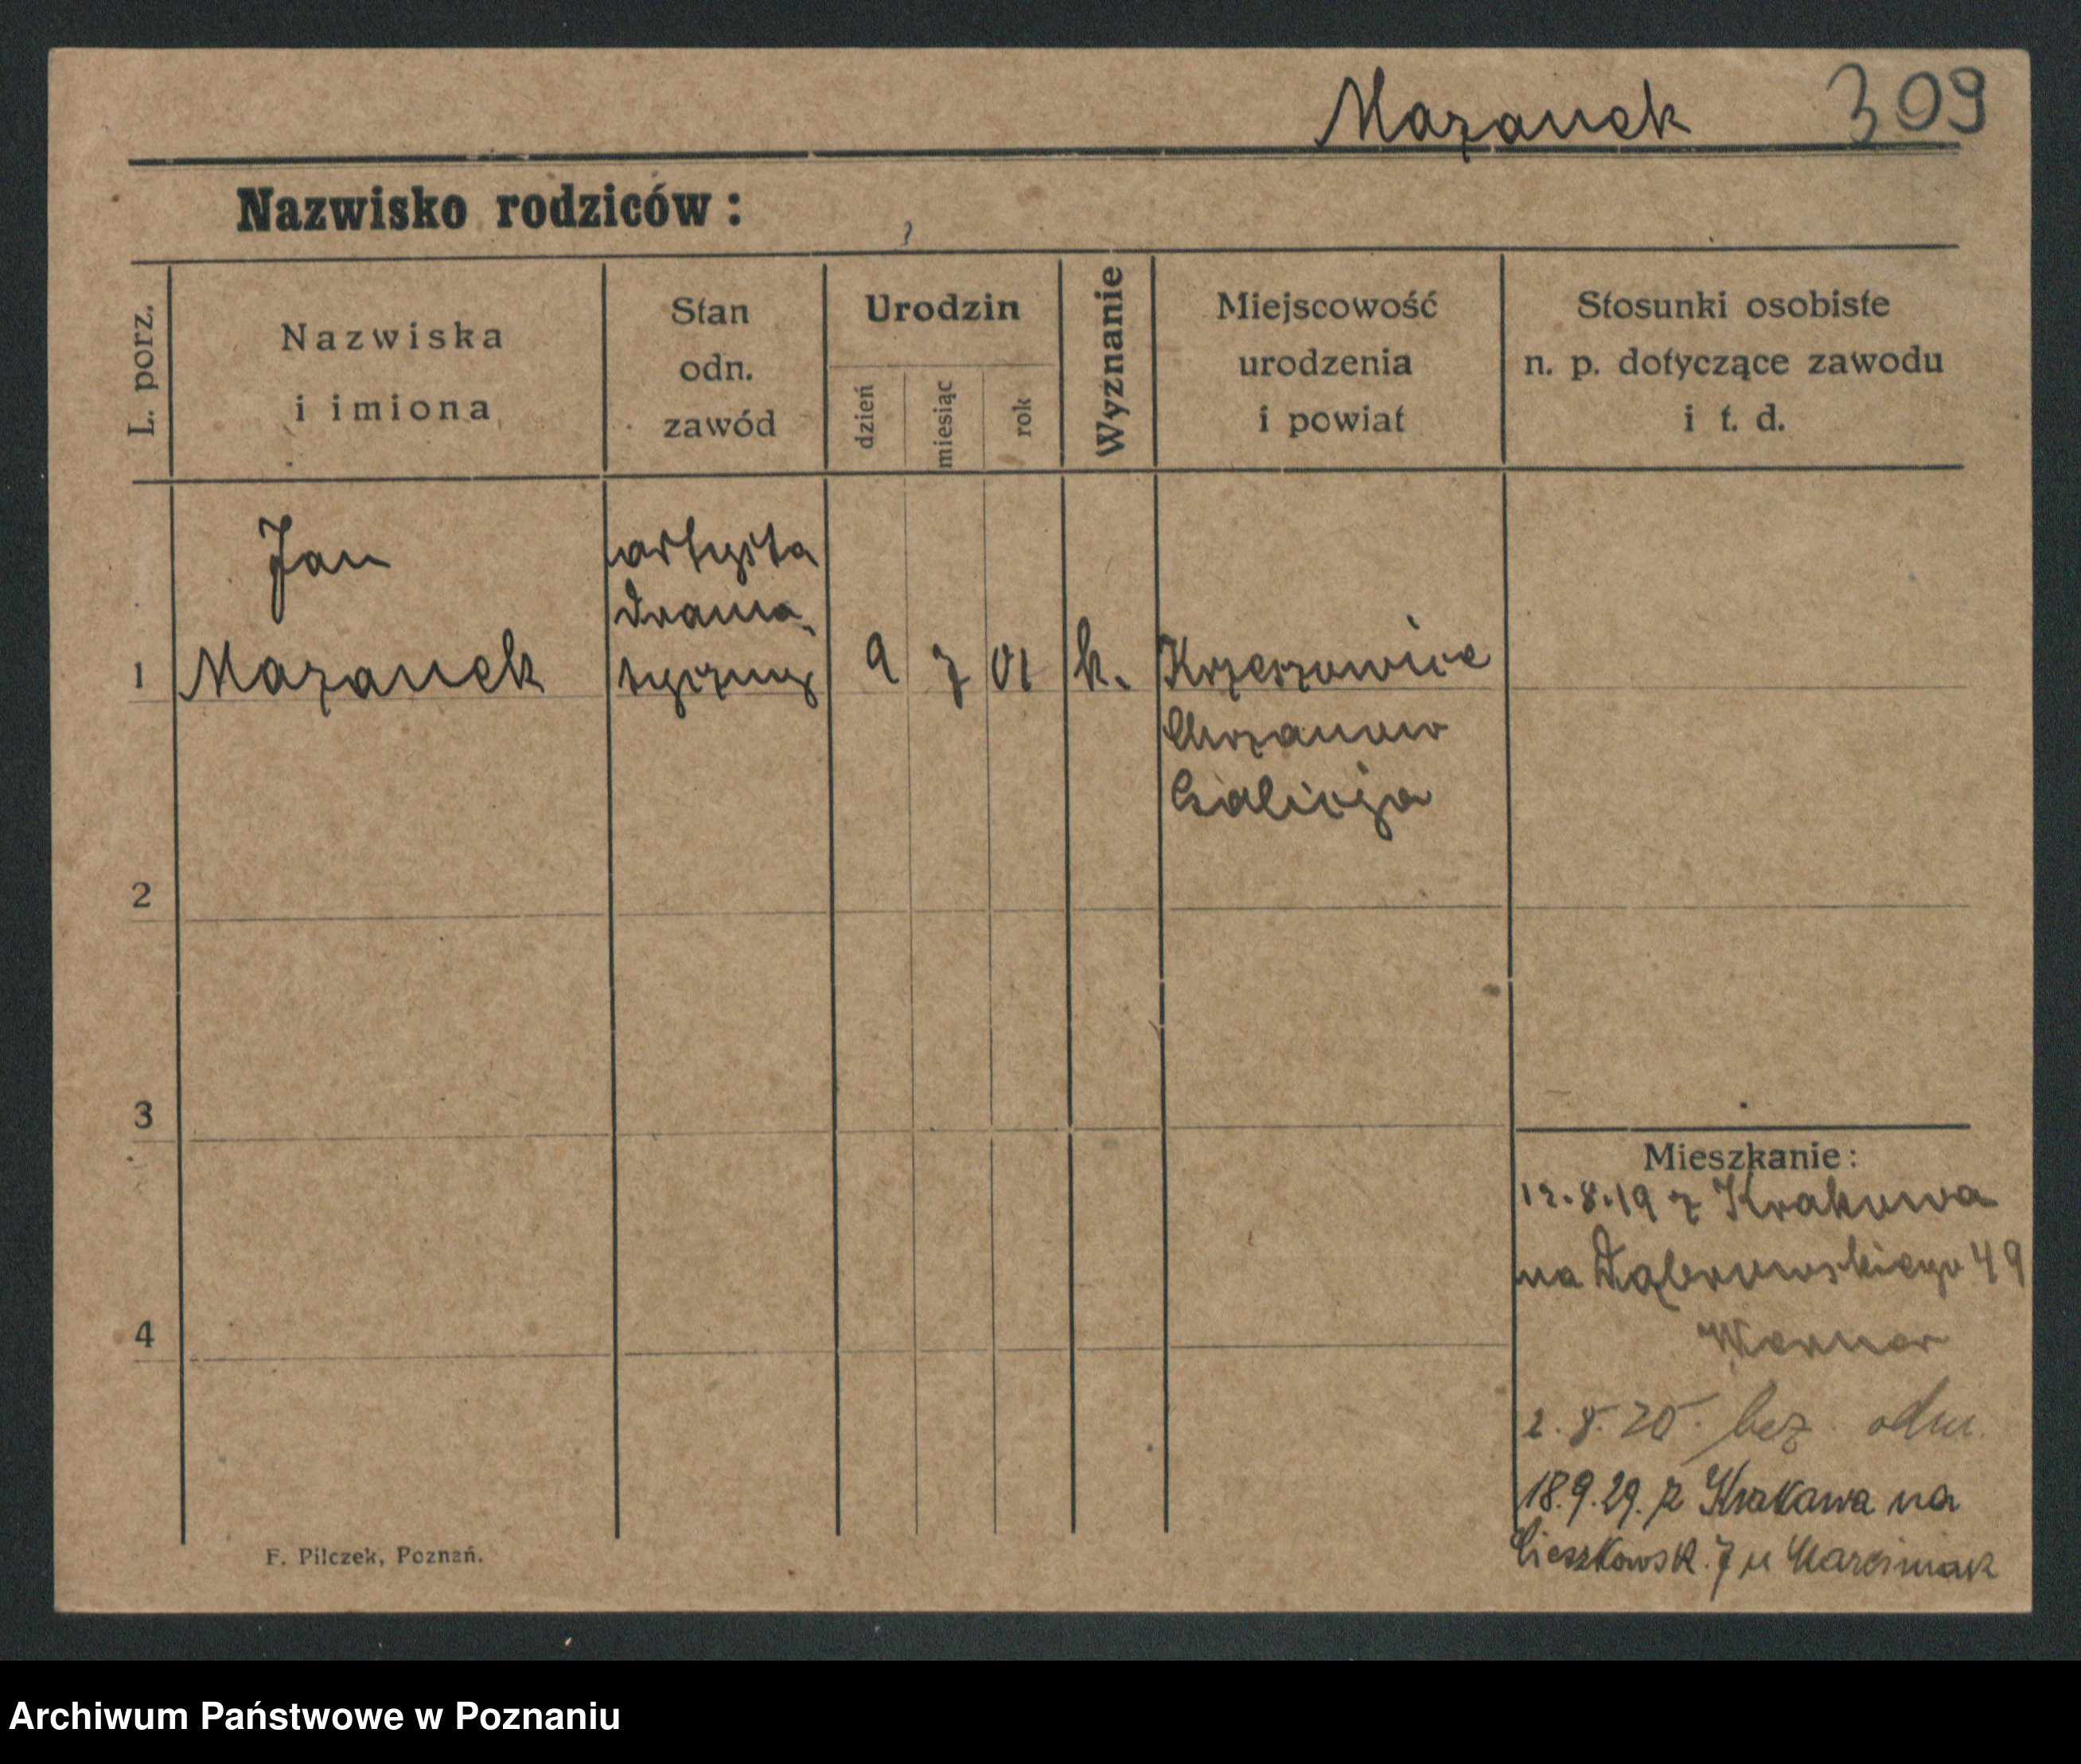 Mazanek 309
Nazwisko rodziców :
L. porz.
Nazwiska
i imiona
Stan
odn.
zawód
Urodzin
dzień
miesiąc
rok
Wyznanie
Miejscowość
urodzenia
i powiat
Stosunki osobiste
n. p. dotyczące zawodu
i t. d.
Jan
Mazanek
artysta
drama-
tyczny
1
9 7 01 k.
Krzeszowice
Chrzanow
Galicja
2
3
4
Mieszkanie :
12.8.19 z Krakowa
na Dąbrowskiego 49
Werner
2.8.20. bez odm.
18.9.29. z Krakowa na
Cieszkowsk. 7 u Marciniak
F. Pilczek, Poznań.
Archiwum Państwowe w Poznaniu